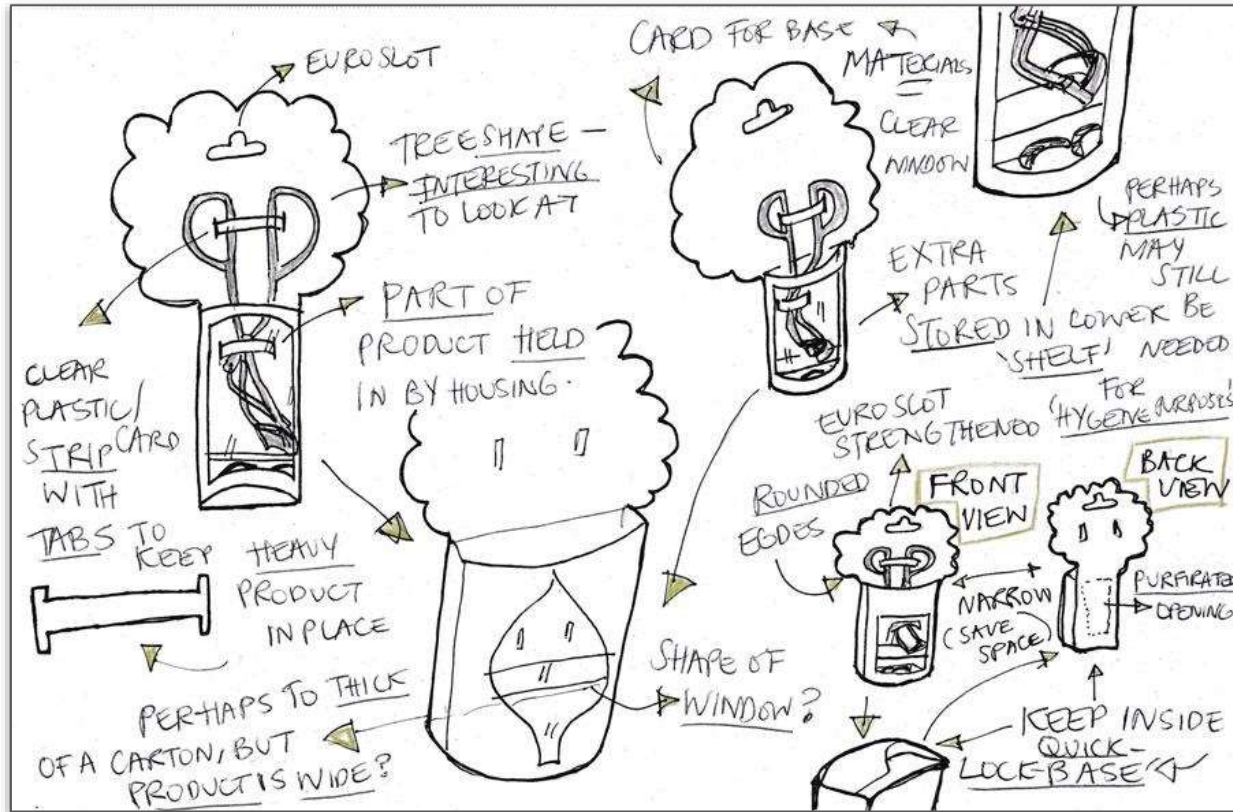 EUROSLOT
TREE SHAPE –
INTERESTING
TO LOOK AT
PART OF
PRODUCT HELD
IN BY HOUSING.
CLEAR
PLASTIC/
STRIP CARD
WITH
TABS TO
KEEP HEAVY
PRODUCT
IN PLACE
PERHAPS TO THICK
OF A CARTON, BUT
PRODUCT IS WIDE?
SHAPE OF
WINDOW?
CARD FOR BASE
MATERIALS
CLEAR
WINDOW
PERHAPS
PLASTIC
MAY
STILL
BE
NEEDED
FOR
'HYGENE PURPOSES'
EXTRA
PARTS
STORED IN LOWER
'SHELF'
EUROSLOT
STRENGTHENED
ROUNDED
EGDES
FRONT
VIEW
BACK
VIEW
NARROW
(SAVE
SPACE)
PURFIRATED
OPENING
KEEP INSIDE
QUICK-
LOCK-BASE